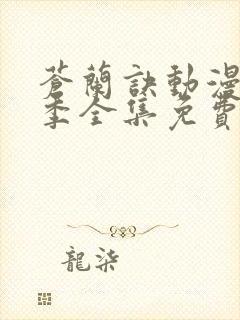 蒼蘭訣動漫
季全集免費
龍柒